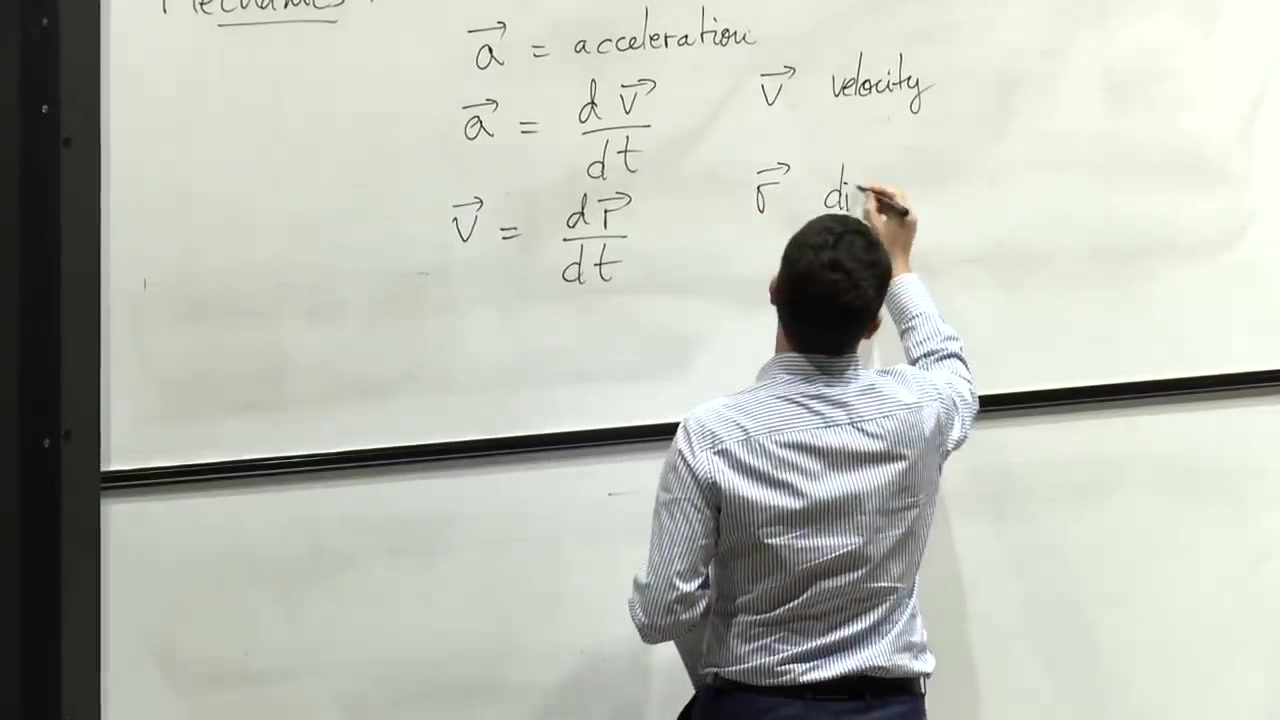 Mechanics
a⃗ = acceleration
a⃗ = dv⃗/dt    v⃗ velocity
v⃗ = dr⃗/dt    r⃗ di